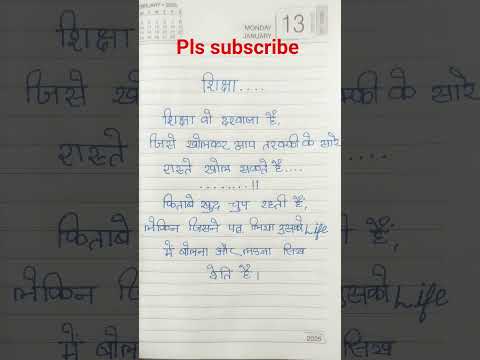 FEBRUARY • 2025
MONDAY
JANUARY
13
Pls subscribe
शिक्षा....
शिक्षा वो दरवाजा हैं,
जिसे खोलकर आप तरक्की के सारे
रास्ते खोल सकते हैं....
........!!
किताबे खुद चुप रहती हैं,
लेकिन जिसने पढ़ लिया उसको Life
में बोलना और लड़ना सिख
देति है।
2025